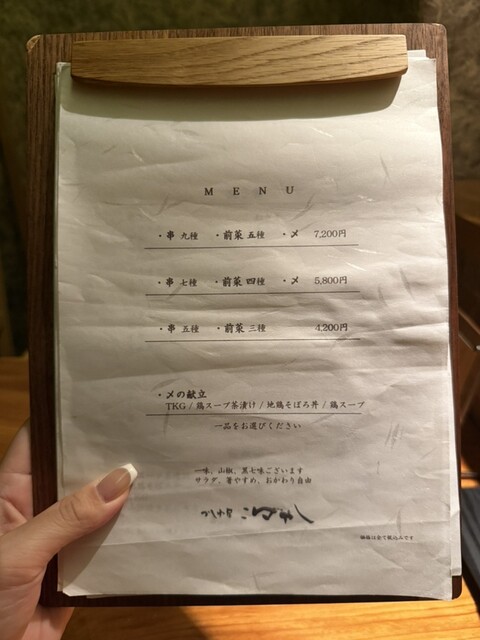 MENU
・串 九種 ・前菜 五種 ・〆 7,200円
・串 七種 ・前菜 四種 ・〆 5,800円
・串 五種 ・前菜 三種 4,200円
・〆の献立
TKG / 鶏スープ茶漬け / 地鶏そぼろ丼 / 鶏スープ
一品をお選びください
一味、山椒、黒七味ございます
サラダ、箸やすめ、おかわり自由
価格は全て税込みです